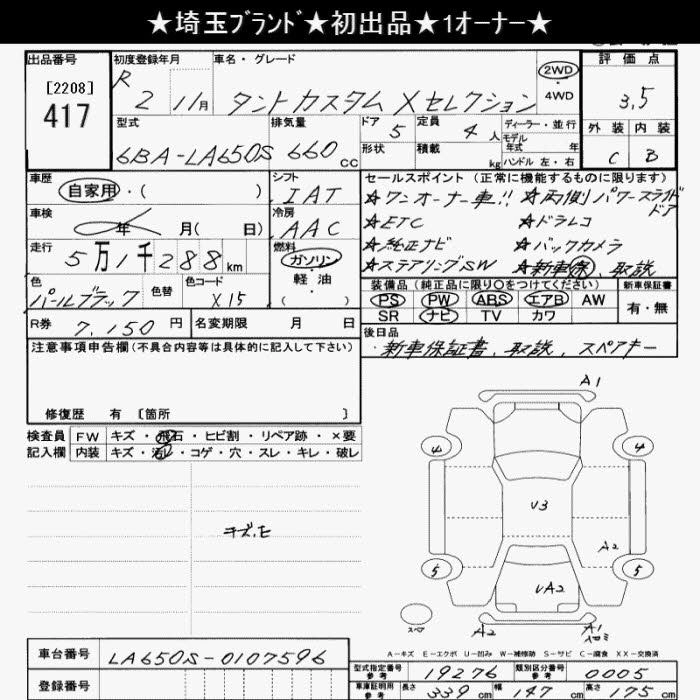 ★埼玉ﾌﾞﾗﾝﾄﾞ★初出品★1オーナー★
出品番号
[2208]
417
初度登録年月 車名・グレード 評価点
R 2 11月 タントカスタム Xセレクション 2WD・4WD 3.5
型式 排気量 ドア 定員 ディーラー・並行 外装 内装
6BA-LA650S 660cc 5 4人 モデル年式 年 C B
形状 積載 kg ハンドル 左・右
車歴 シフト セールスポイント (正常に機能するものに限ります)
自家用・( ) IAT ★ワンオーナー車!! ★両側パワースライドドア
車検 冷房 ★ETC ★ドラレコ
年 月( 日) AAC ★純正ナビ ★バックカメラ
走行 燃料 ★ステアリングSW ★新車保、取説
5万1千288km ガソリン・軽油
色 色替 色コード 装備品 (純正品に限り○をつけてください) 新車保証書
パールブラック X15 PS PW ABS エアB AW 有・無
SR ナビ TV カワ
R券 7,150円 名変期限 月 日 後日品
・新車保証書、取説、スペアキー
注意事項申告欄(不具合内容等は具体的に記入して下さい)
修復歴 有 [箇所 ]
検査員 FW キズ・飛石・ヒビ割・リペア跡・×要
記入欄 内装 キズ・汚レ・コゲ・穴・スレ・キレ・破レ
キズ、モ
A1
4 4
U3
A2
5 5
UA2
スペア
A2 A1
A－キズ E－エクボ U－凹み W－補修跡 S－サビ C－腐食 XX－交換済
車台番号 LA650S-0107596
型式指定番号 参考 19276 類別区分番号 参考 0005
登録番号
車庫証明用 参考 長さ 339cm 幅 147cm 高さ 175cm